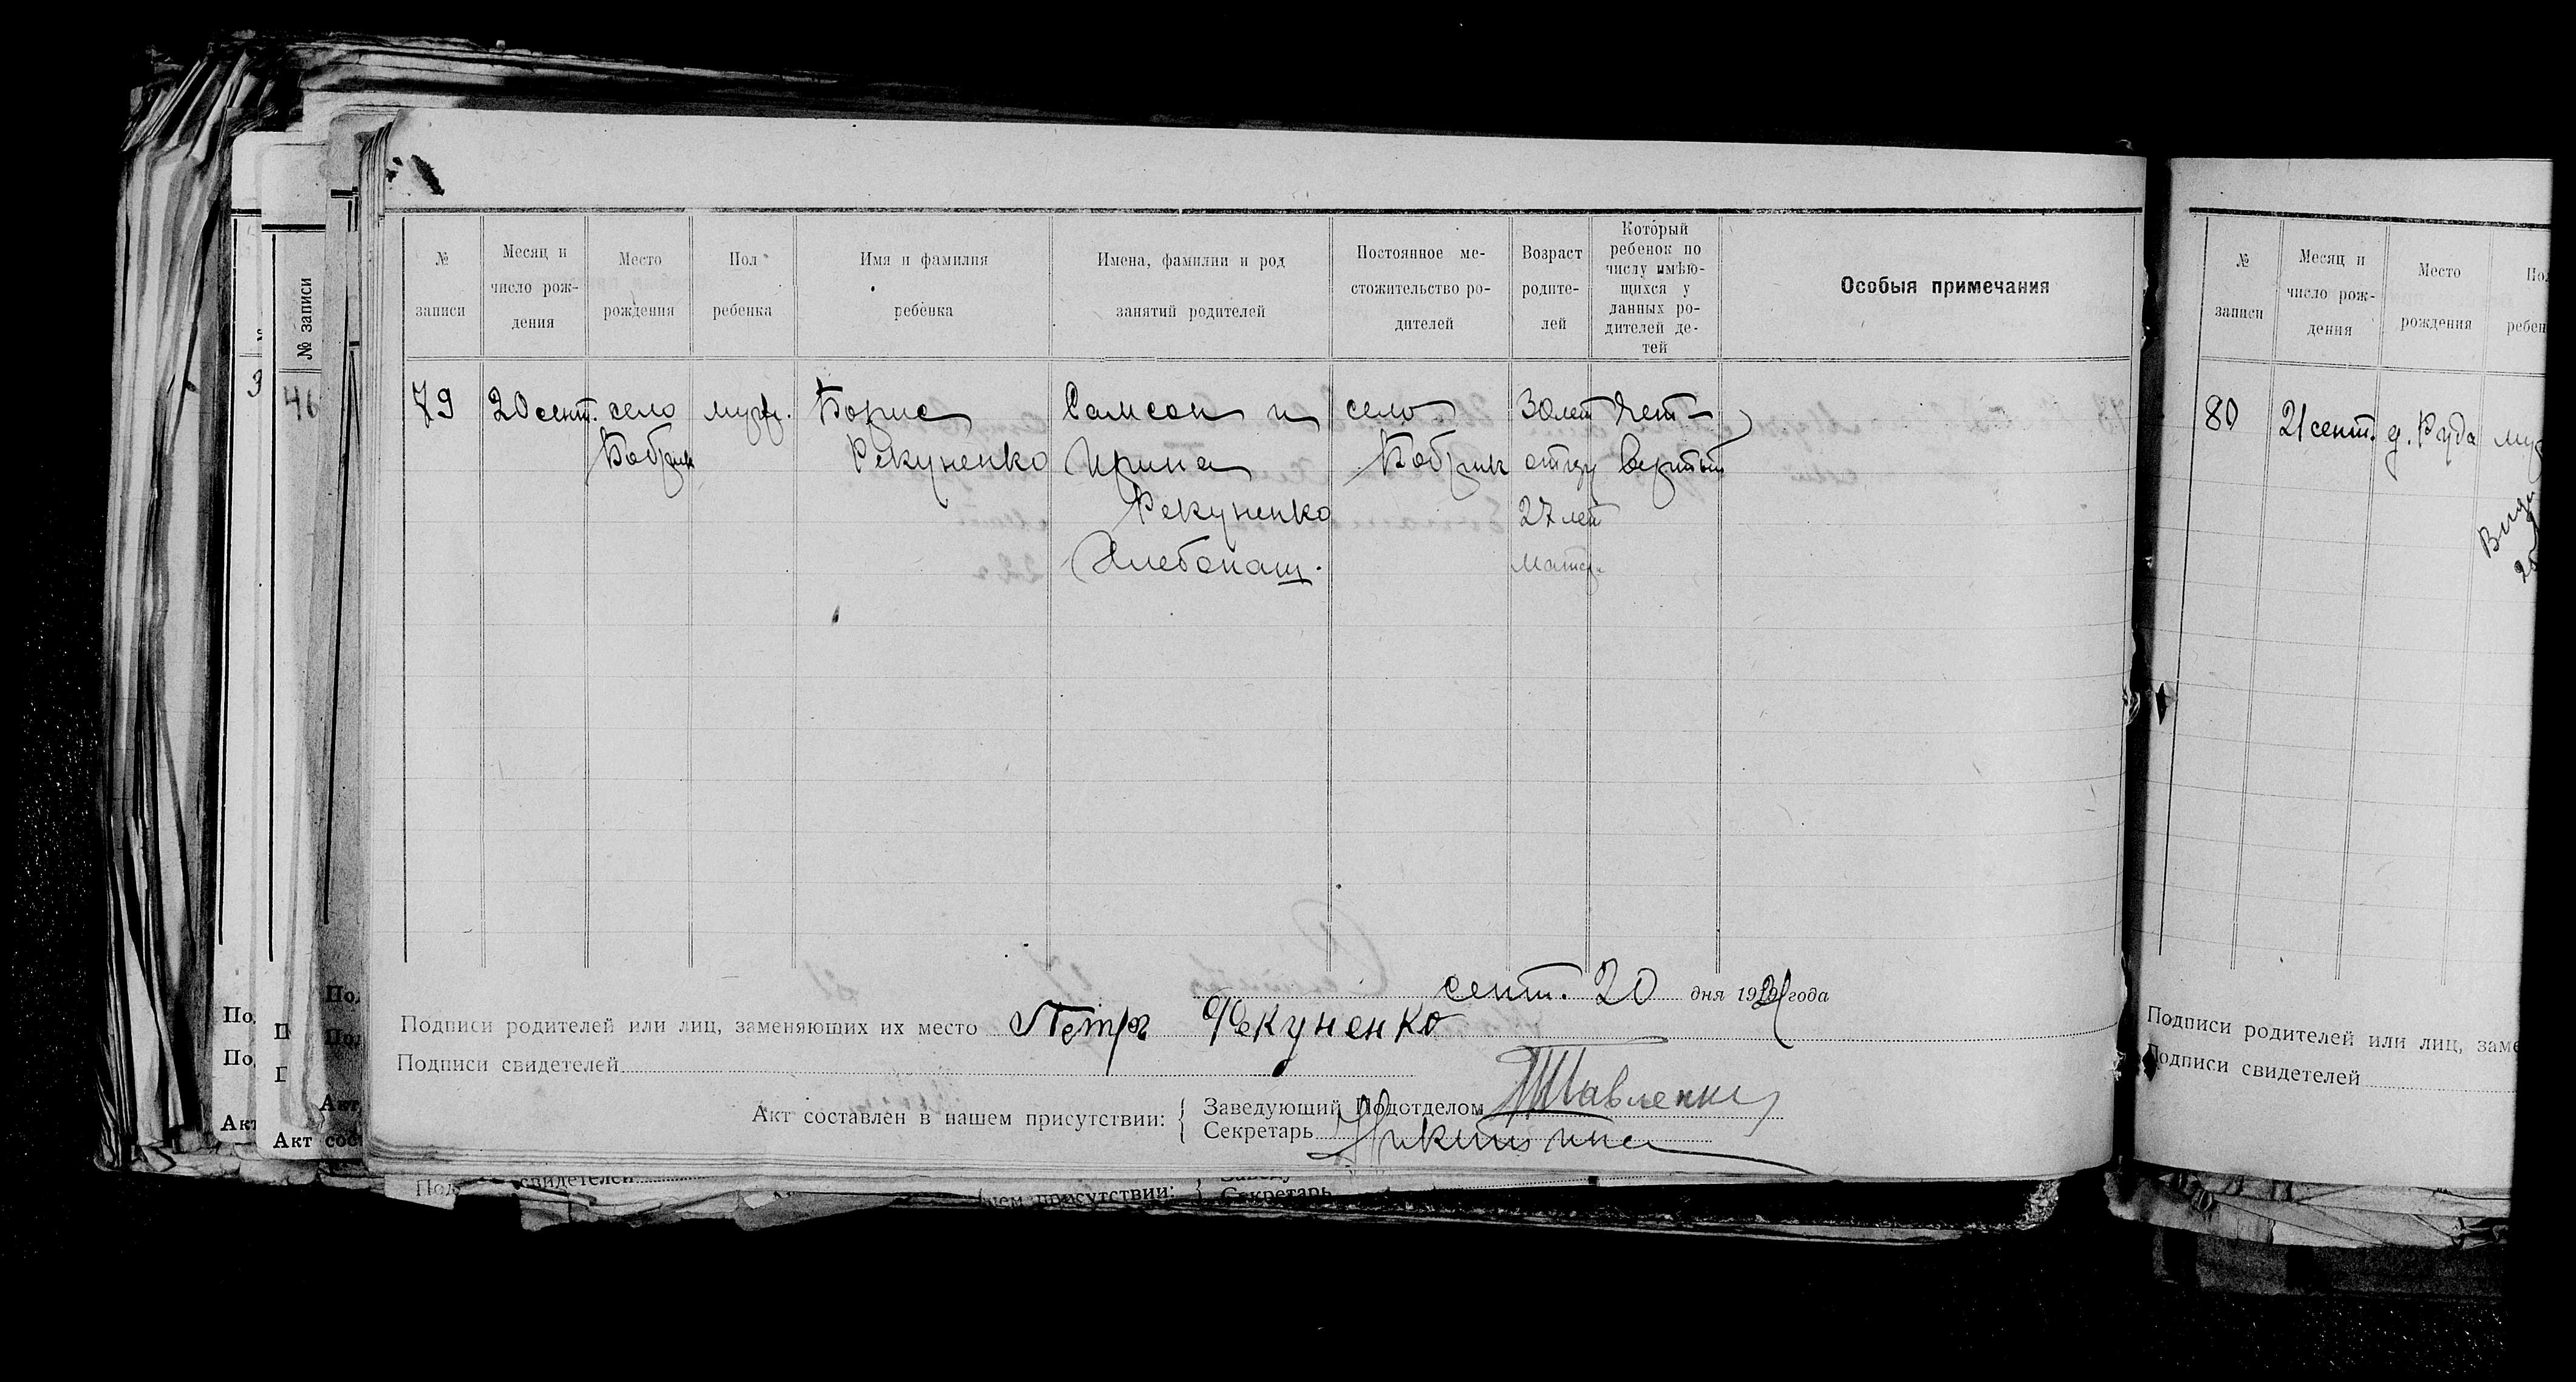 № записи
Месяц и число рождения
Место рождения
Пол ребенка
Имя и фамилия ребенка
Имена, фамилии и род занятий родителей
Постоянное местожительство родителей
Возраст родителей
Который ребенок по числу имѣющихся у данных родителей детей
Особыя примечания
79
20 сент.
село
Бобрик
муж.
Борис
Рекуненко
Самсон и
Ирина
Рекуненко
Хлебопаш.
село
Бобрик
30 лет
отцу
27 лет
матер.
Чет-
вертый
сент. 20 дня 1921 года
Подписи родителей или лиц, заменяющих их место Петръ Рекуненко
Подписи свидетелей
Акт составлен в нашем присутствии:
Заведующий Подотделом
Секретарь
№ записи
Месяц и число рождения
Место рождения
80
21 сент.
д. Руда
Подписи родителей или лиц,
Подписи свидетелей
№ записи
46